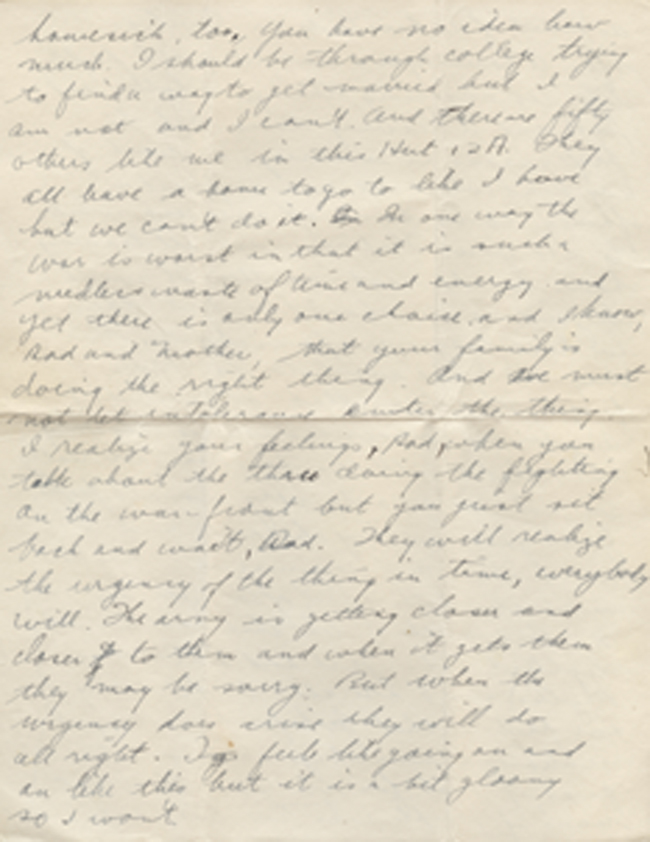 homesick, too. You have no idea how
much. I should be through college trying
to find a way to get married but I
am not and I can't. And there are fifty
others like me in this Hut 12A. They
all have a home to go to like I have
but we can't do it. In one way the
war is worst in that it is such a
needless waste of time and energy and
yet there is only one choice and I know,
Dad and Mother, that your family is
doing the right thing. And we must
not let intolerance enter the thing.
I realize your feelings, Dad, when you
talk about the three doing the fighting
on the war-front but you just sit
back and wait, Dad. They will realize
the urgency of the thing in time, everybody
will. The army is getting closer and
closer to them and when it gets them
they may be sorry. But when the
urgency does arise they will do
all right. I feel like going on and
on like this but it is a bit gloomy
so I won't